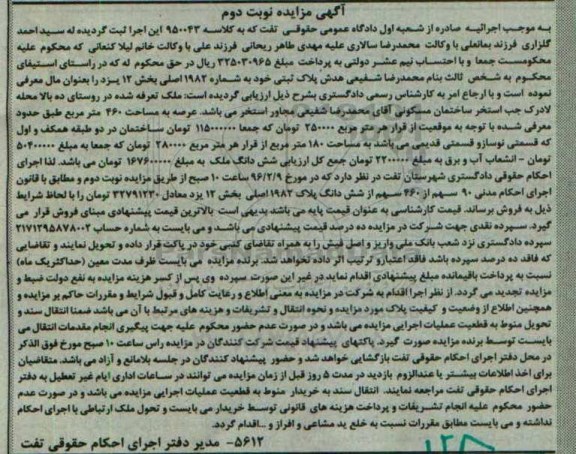 آگهی مزایده نوبت دوم
به موجب اجرائیه صادره از شعبه اول دادگاه عمومی حقوقی تفت که به کلاسه ۹۵۰۰۴۳ این اجرا ثبت گردیده له سید احمد
گلزاری فرزند بمانعلی با وکالت محمدرضا سالاری علیه مهدی طاهر ریحانی فرزند علی با وکالت خانم لیلا کنعانی که محکوم علیه
محکومست جمعا و با احتساب نیم عشر دولتی به پرداخت مبلغ ۳۲۵۰۳۰۹۶۵ ریال در حق محکوم له که در راستای استیفای
محکوم به شخص ثالث بنام محمدرضا شفیعی هدش پلاک ثبتی خود به شماره ۱۹۸۲ اصلی بخش ۱۲ یزد را بعنوان مال معرفی
نموده است و با ارجاع امر به کارشناس رسمی دادگستری بشرح ذیل ارزیابی گردیده است: ملک تعرفه شده در روستای ده بالا محله
لادرک جنب استخر ساختمان مسکونی آقای محمدرضا شفیعی مجاور استخر می باشد. عرصه به مساحت ۴۶۰ متر مربع طبق حدود
معرفی شده با توجه به موقعیت از قرار هر متر مربع ۲۵۰۰۰۰ تومان که جمعا ۱۱۵۰۰۰۰۰۰ تومان ساختمان در دو طبقه همکف و اول
که قسمتی نوسازو قسمتی قدیمی می باشد به مساحت ۱۸۰ متر مربع از قرار هر متر مربع ۲۸۰۰۰۰ تومان که جمعا به مبلغ ۵۰۴۰۰۰۰۰
تومان - انشعاب آب و برق به مبلغ ۲۲۰۰۰۰۰ تومان جمع کل ارزیابی شش دانگ ملک به مبلغ ۱۶۷۶۰۰۰۰۰ تومان می باشد. لذا اجرای
احکام حقوقی دادگستری شهرستان تفت در نظر دارد که در مورخ ۹۶/۲/۹ ساعت ۱۰ صبح از طریق مزایده نوبت دوم و مطابق با قانون
اجرای احکام مدنی ۹۰ سهم از ۴۶۰ سهم از شش دانگ پلاک ۱۹۸۲ اصلی بخش ۱۲ یزد معادل ۳۲۷۹۱۲۳۰ تومان را با لحاظ شرایط
ذیل به فروش برساند. قیمت کارشناسی به عنوان قیمت پایه می باشد بدیهی است بالاترین قیمت پیشنهادی مبنای فروش قرار می
گیرد. سپرده نقدی جهت شرکت در مزایده ده درصد قیمت پیشنهادی می باشد و می بایست به شماره حساب ۲۱۷۱۲۹۵۸۷۸۰۰۲
سپرده دادگستری نزد شعب بانک ملی واریز و اصل فیش را به همراه تقاضای کتبی خود در پاکت قرار داده و تحویل نمایند و تقاضایی
که فاقد ده درصد سپرده باشد فاقد اعتبار و ترتیب اثر داده نخواهد شد. برنده مزایده می بایست ظرف مدت معین (حداکثر یک ماه)
نسبت به پرداخت باقیمانده مبلغ پیشنهادی اقدام نماید در غیر این صورت سپرده وی پس از کسر هزینه مزایده به نفع دولت ضبط و
مزایده تجدید می گردد. از نظر اجرا اقدام به شرکت در مزایده به معنی اطلاع و رعایت کامل و قبول شرایط و مقررات حاکم بر مزایده و
همچنین اطلاع از وضعیت و کیفیت پلاک مورد مزایده و نحوه انتقال و تشریفات و هزینه های مرتبط با آن می باشد ضمنا انتقال سند و
تحویل منوط به قطعیت عملیات اجرایی مزایده می باشد و در صورت عدم حضور محکوم علیه جهت پیگیری انجام مقدمات انتقال می
بایست توسط برنده مزایده صورت گیرد. پاکتهای پیشنهاد قیمت شرکت کنندگان در مزایده راس ساعت ۱۰ صبح مورخ فوق الذکر
در محل دفتر اجرای احکام حقوقی تفت بازگشایی خواهد شد و حضور پیشنهاد کنندگان در جلسه بلامانع و آزاد می باشد. متقاضیان
برای اخذ اطلاعات بیشتر یا عندالزوم بازدید در مدت ۵ روز قبل از زمان مزایده می توانند در ساعات اداری ایام غیر تعطیل به دفتر
اجرای احکام حقوقی تفت مراجعه نمایند. انتقال سند به خریدار منوط به قطعیت عملیات اجرایی مزایده می باشد و در صورت عدم
حضور محکوم علیه انجام تشریفات و پرداخت هزینه های قانونی توسط خریدار می بایست و تحول ملک ارتباطی با اجرای احکام
نداشته و می بایست مطابق مقررات نسبت به خلع ید مشاعی و افراز و ...اقدام گردد.
۵۶۱۲- مدیر دفتر اجرای احکام حقوقی تفت